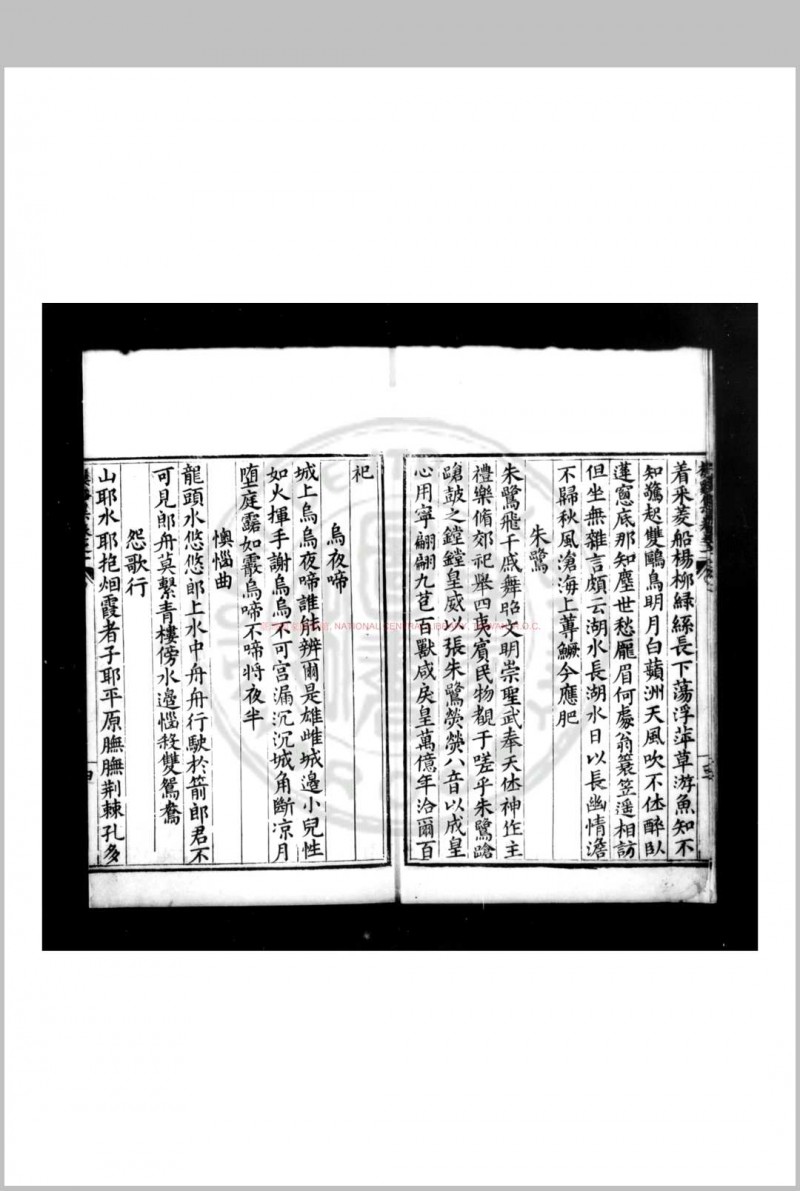 着采菱船楊柳緑絲長下蕩浮萍草游魚知不
知驚起雙鷗鳥明月白蘋洲天風吹不休醉臥
蓬窻底那知塵世愁龎眉何處翁簑笠遥相訪
但坐無雜言頗云湖水長湖水日以長幽情澹
不歸秋風滄海上蓴鱖今應肥
朱鷺
朱鷺飛干戚舞昭文明崇聖武奉天休神迮主
禮樂脩郊祀舉四夷賓民物覩于嗟乎朱鷺蹌
蹌鼓之鏜鏜皇威以張朱鷺熒熒八音以成皇
心用寧翩翩九苞百獸咸戾皇萬億年洽爾百
祀
烏夜啼
城上烏烏夜啼誰能辨爾是雄雌城邊小兒性
如火揮手謝烏烏不可宮漏沉沉城角斷凉月
墮庭露如霰烏啼不啼將夜半
懊惱曲
龍頭水悠悠郎上水中舟舟行駛於箭郎君不
可見郎舟莫繫青樓傍水邊惱殺雙鴛鴦
怨歌行
山耶水耶抱烟霞者子耶平原膴膴荆棘孔多
四
NATIONAL CENTRAL LIBRARY, TAIWAN, R.O.C.